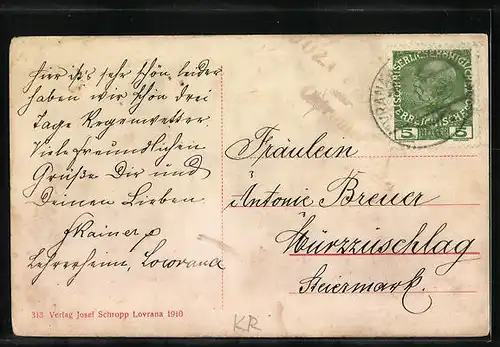 hier ist's sehr schön, leider
haben wir schon drei
Tage Regenwetter
Viele freundlichen
Grüße Dir und
Deinen Lieben
Rainer
Lehrerheim, Lovrana
313 Verlag Josef Schropp Lovrana 1910
Fräulein
Antonie Breuer
Mürzzuschlag
Steiermark.
KR
5 HELLER 5